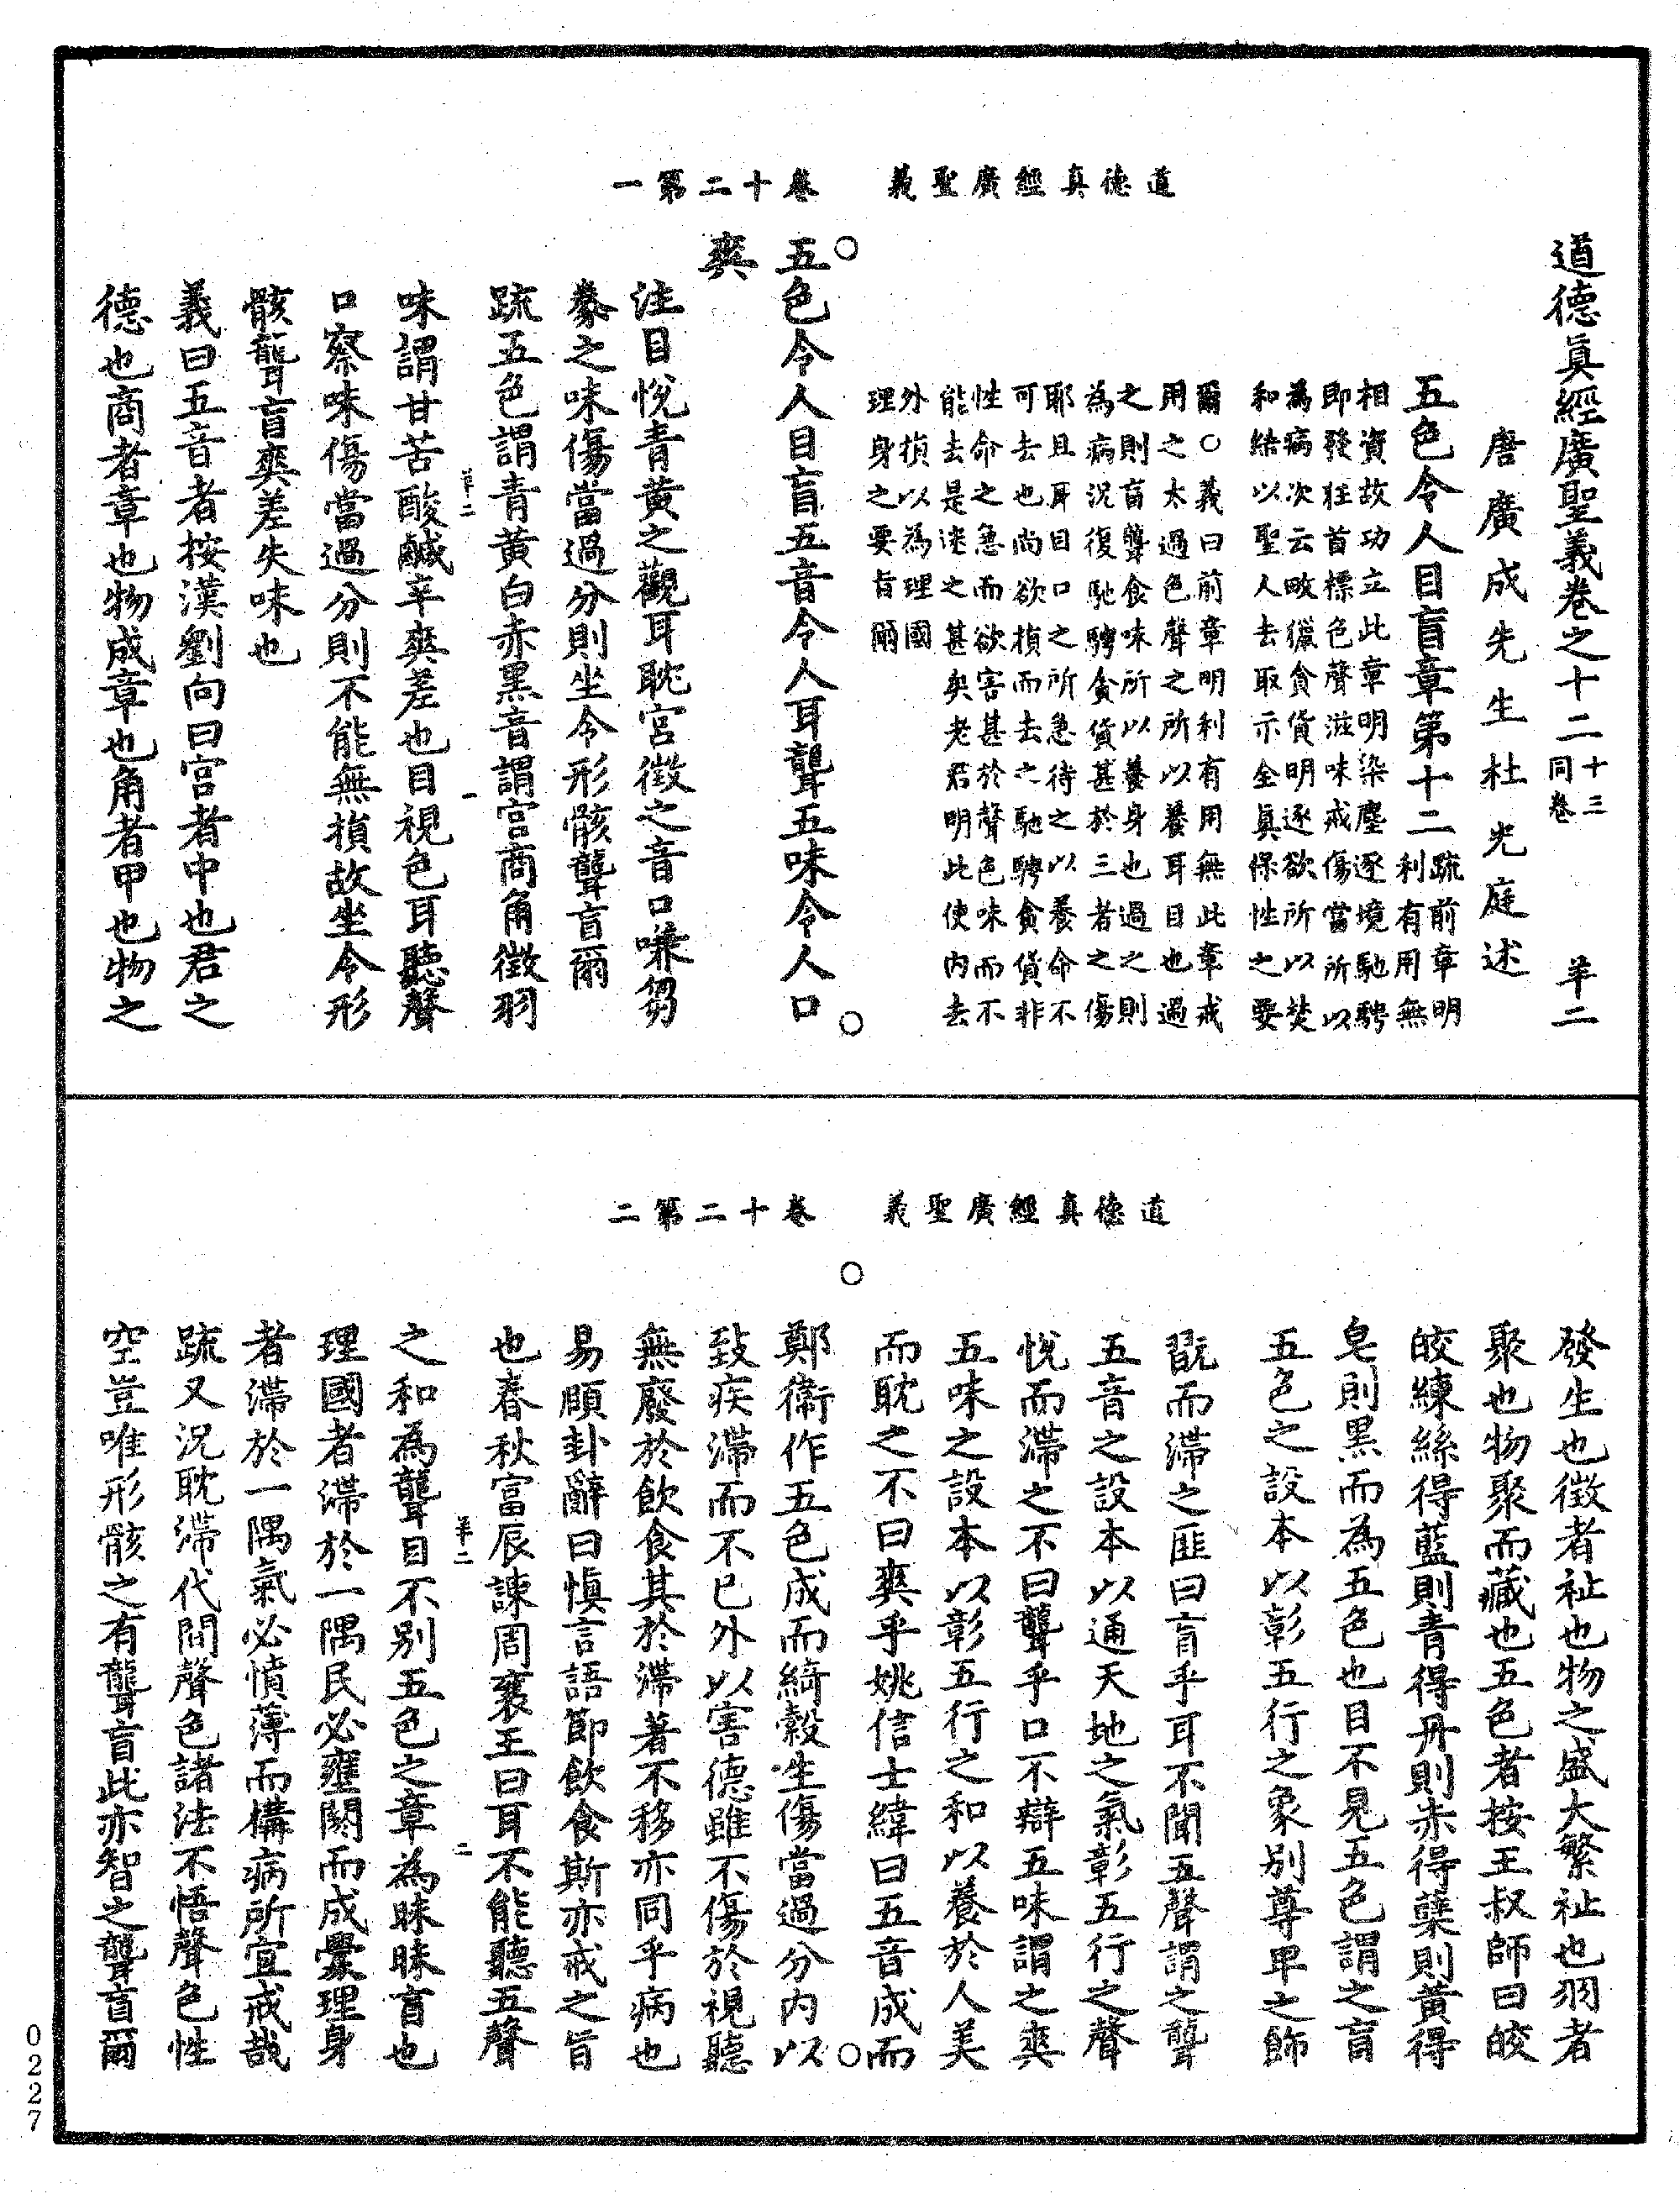 道德真經廣聖義　卷十二第一
道德眞經廣聖義卷之十二 十三同卷 羊二
唐廣成先生杜光庭述
五色令人目盲章第十二 疏前章明
利有用無
相資故功立此章明染塵逐境馳騁
即發狂首標色聲滋味戒傷當所以
為病次云畋獵貪貨明逐欲所以焚
和結以聖人去取示全真保性之要
爾○義曰前章明利有用無此章戒
用之太過色聲之所以養耳目也過
之則盲聾食味所以養身也過之則
為病況復馳騁貪貨甚於三者之傷
耶且耳目口之所急待之以養命不
可去也尚欲損而去之馳騁貪貨非
性命之急而欲害甚於聲色味而不
能去是迷之甚矣老君明此使內去
外損以為理國
理身之要旨爾
五色令人目盲五音令人耳聾五味令人口
爽
注目悅青黃之觀耳耽宮徵之音口嗛芻
豢之味傷當過分則坐令形骸聾盲爾
疏五色謂青黃白赤黑音謂宮商角徵羽
羊二 一
味謂甘苦酸鹹辛爽差也目視色耳聽聲
口察味傷當過分則不能無損故坐令形
骸聾盲爽差失味也
義曰五音者按漢劉向曰宮者中也君之
德也商者章也物成章也角者甲也物之
道德真經廣聖義　卷十二第二
發生也徵者祉也物之盛大繁祉也羽者
聚也物聚而藏也五色者按王叔師曰皎
皎練絲得藍則青得丹則赤得蘗則黃得
皂則黑而為五色也目不見五色謂之盲
五色之設本以彰五行之象別尊卑之飾
翫而滯之匪曰盲乎耳不聞五聲謂之聾
五音之設本以通天地之氣彰五行之聲
悅而滯之不曰聾乎口不辯五味謂之爽
五味之設本以彰五行之和以養於人美
而耽之不曰爽乎姚信士緯曰五音成而
鄭衛作五色成而綺縠生傷當過分內以
致疾滯而不已外以害德雖不傷於視聽
無廢於飲食其於滯著不移亦同乎病也
易頤卦辭曰慎言語節飲食斯亦戒之旨
也春秋富辰諫周襄王曰耳不能聽五聲
羊二 二
之和為聾目不別五色之章為昧昧盲也
理國者滯於一隅民必壅閼而成釁理身
者滯於一隅氣必憤薄而構病所宜戒哉
疏又況耽滯代間聲色諸法不悟聲色性
空豈唯形骸之有聾盲此亦智之聾盲爾
0227